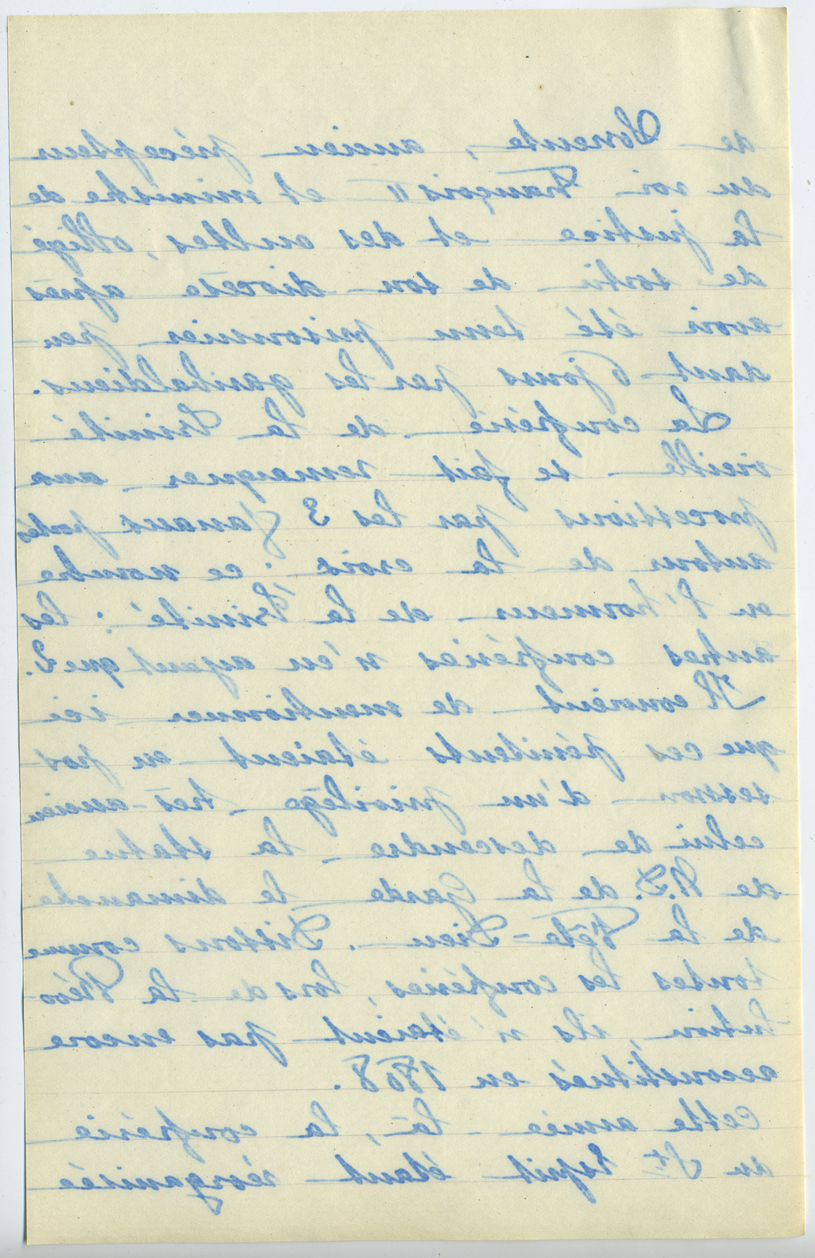 de Sorrente, ancien précepteur
du roi François II et ministre de
la justice et des cultes, obligé
de sortir de son diocèse après
avoir été tenu prisonnier pen-
dant 6 jours par les garibaldiens.
La confrérie de la Trinité
vieille se fait remarquer aux
processions par les 3 fanaux portés
autour de la croix : ce nombre
en l'honneur de la Trinité : les
autres confréries n'en ayant que 2.
Il convient de mentionner ici
que ces pénitents étaient en pos-
session d'un privilège très-ancien
celui de descendre la statue
de N.D. de la Garde le dimanche
de la Fête-Dieu. Dissous comme
toutes les confréries, lors de la Révo-
lution, ils n'étaient pas encore
reconstitués en 1808.
Cette année-là, la confrérie
du St Esprit étant réorganisée